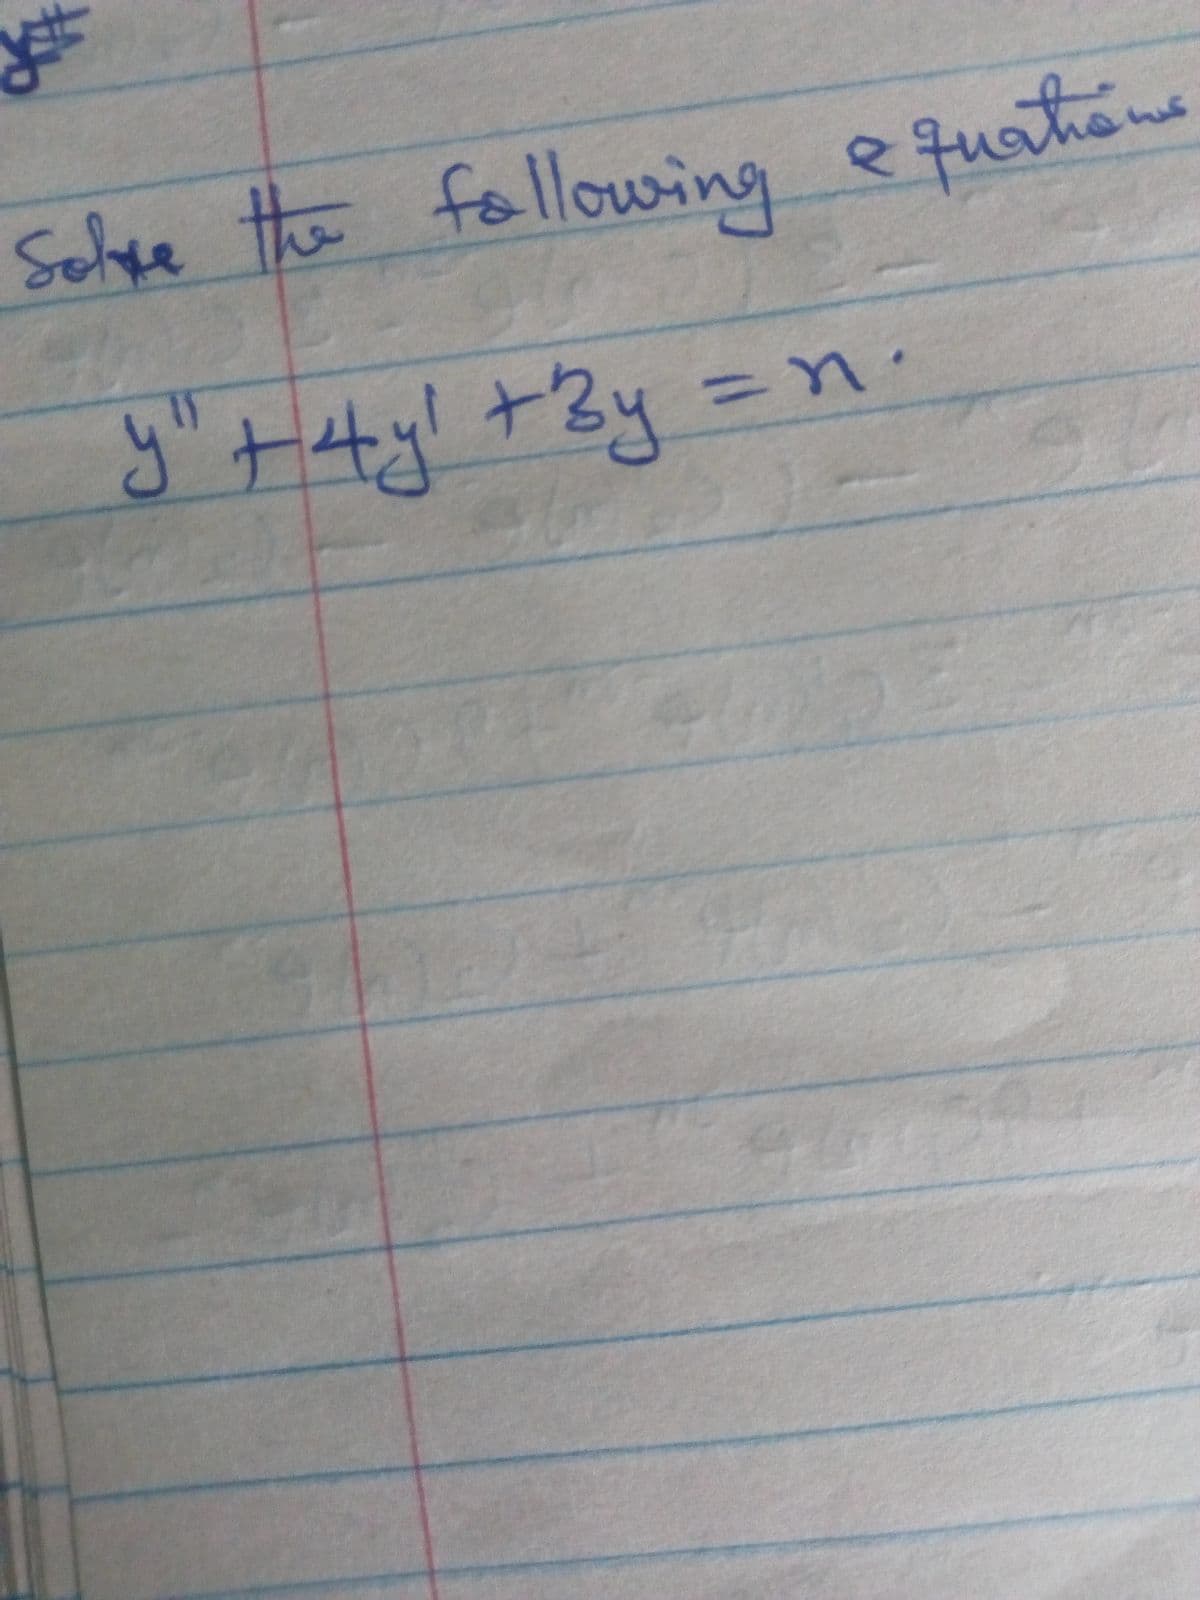 Solve the following equations
y" + 4y' + 3y = n.